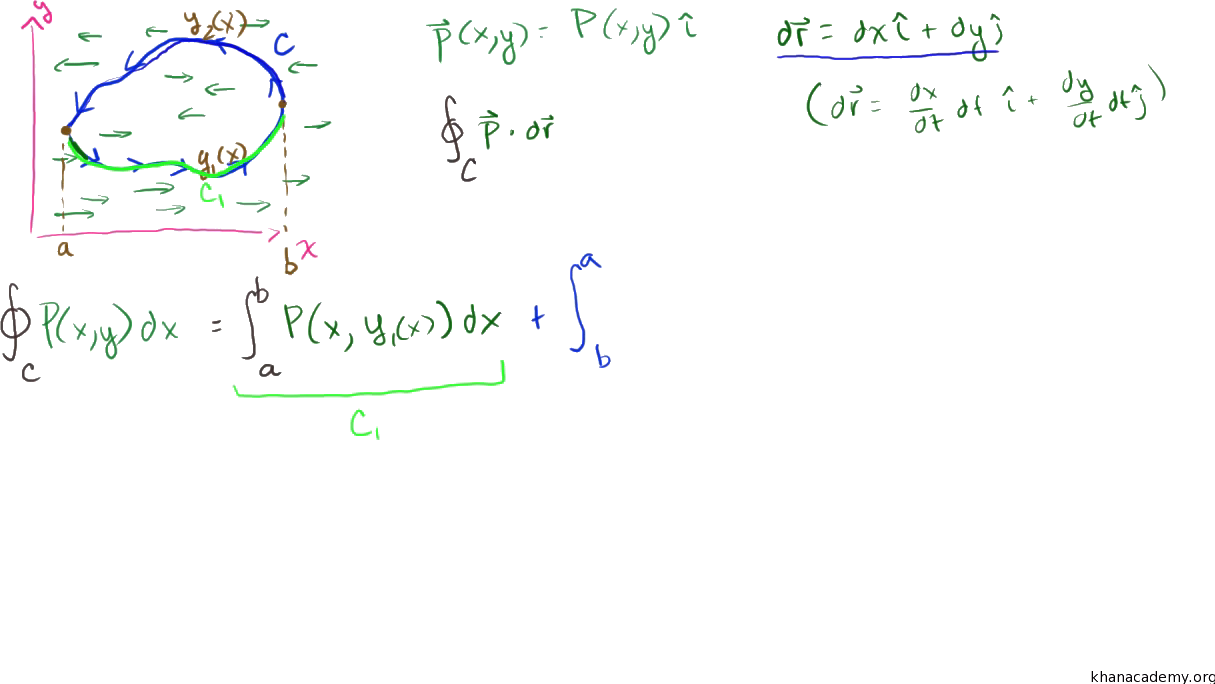 y
y₂(x)
C
y₁(x)
C₁
a
b
x
P⃗(x,y) = P(x,y) î
∮_C P⃗ · dr⃗
dr⃗ = dx î + dy ĵ
(dr⃗ = dx/dt dt î + dy/dt dt ĵ)
∮_C P(x,y) dx = ∫_a^b P(x, y₁(x)) dx + ∫_b^a
C₁
khanacademy.org